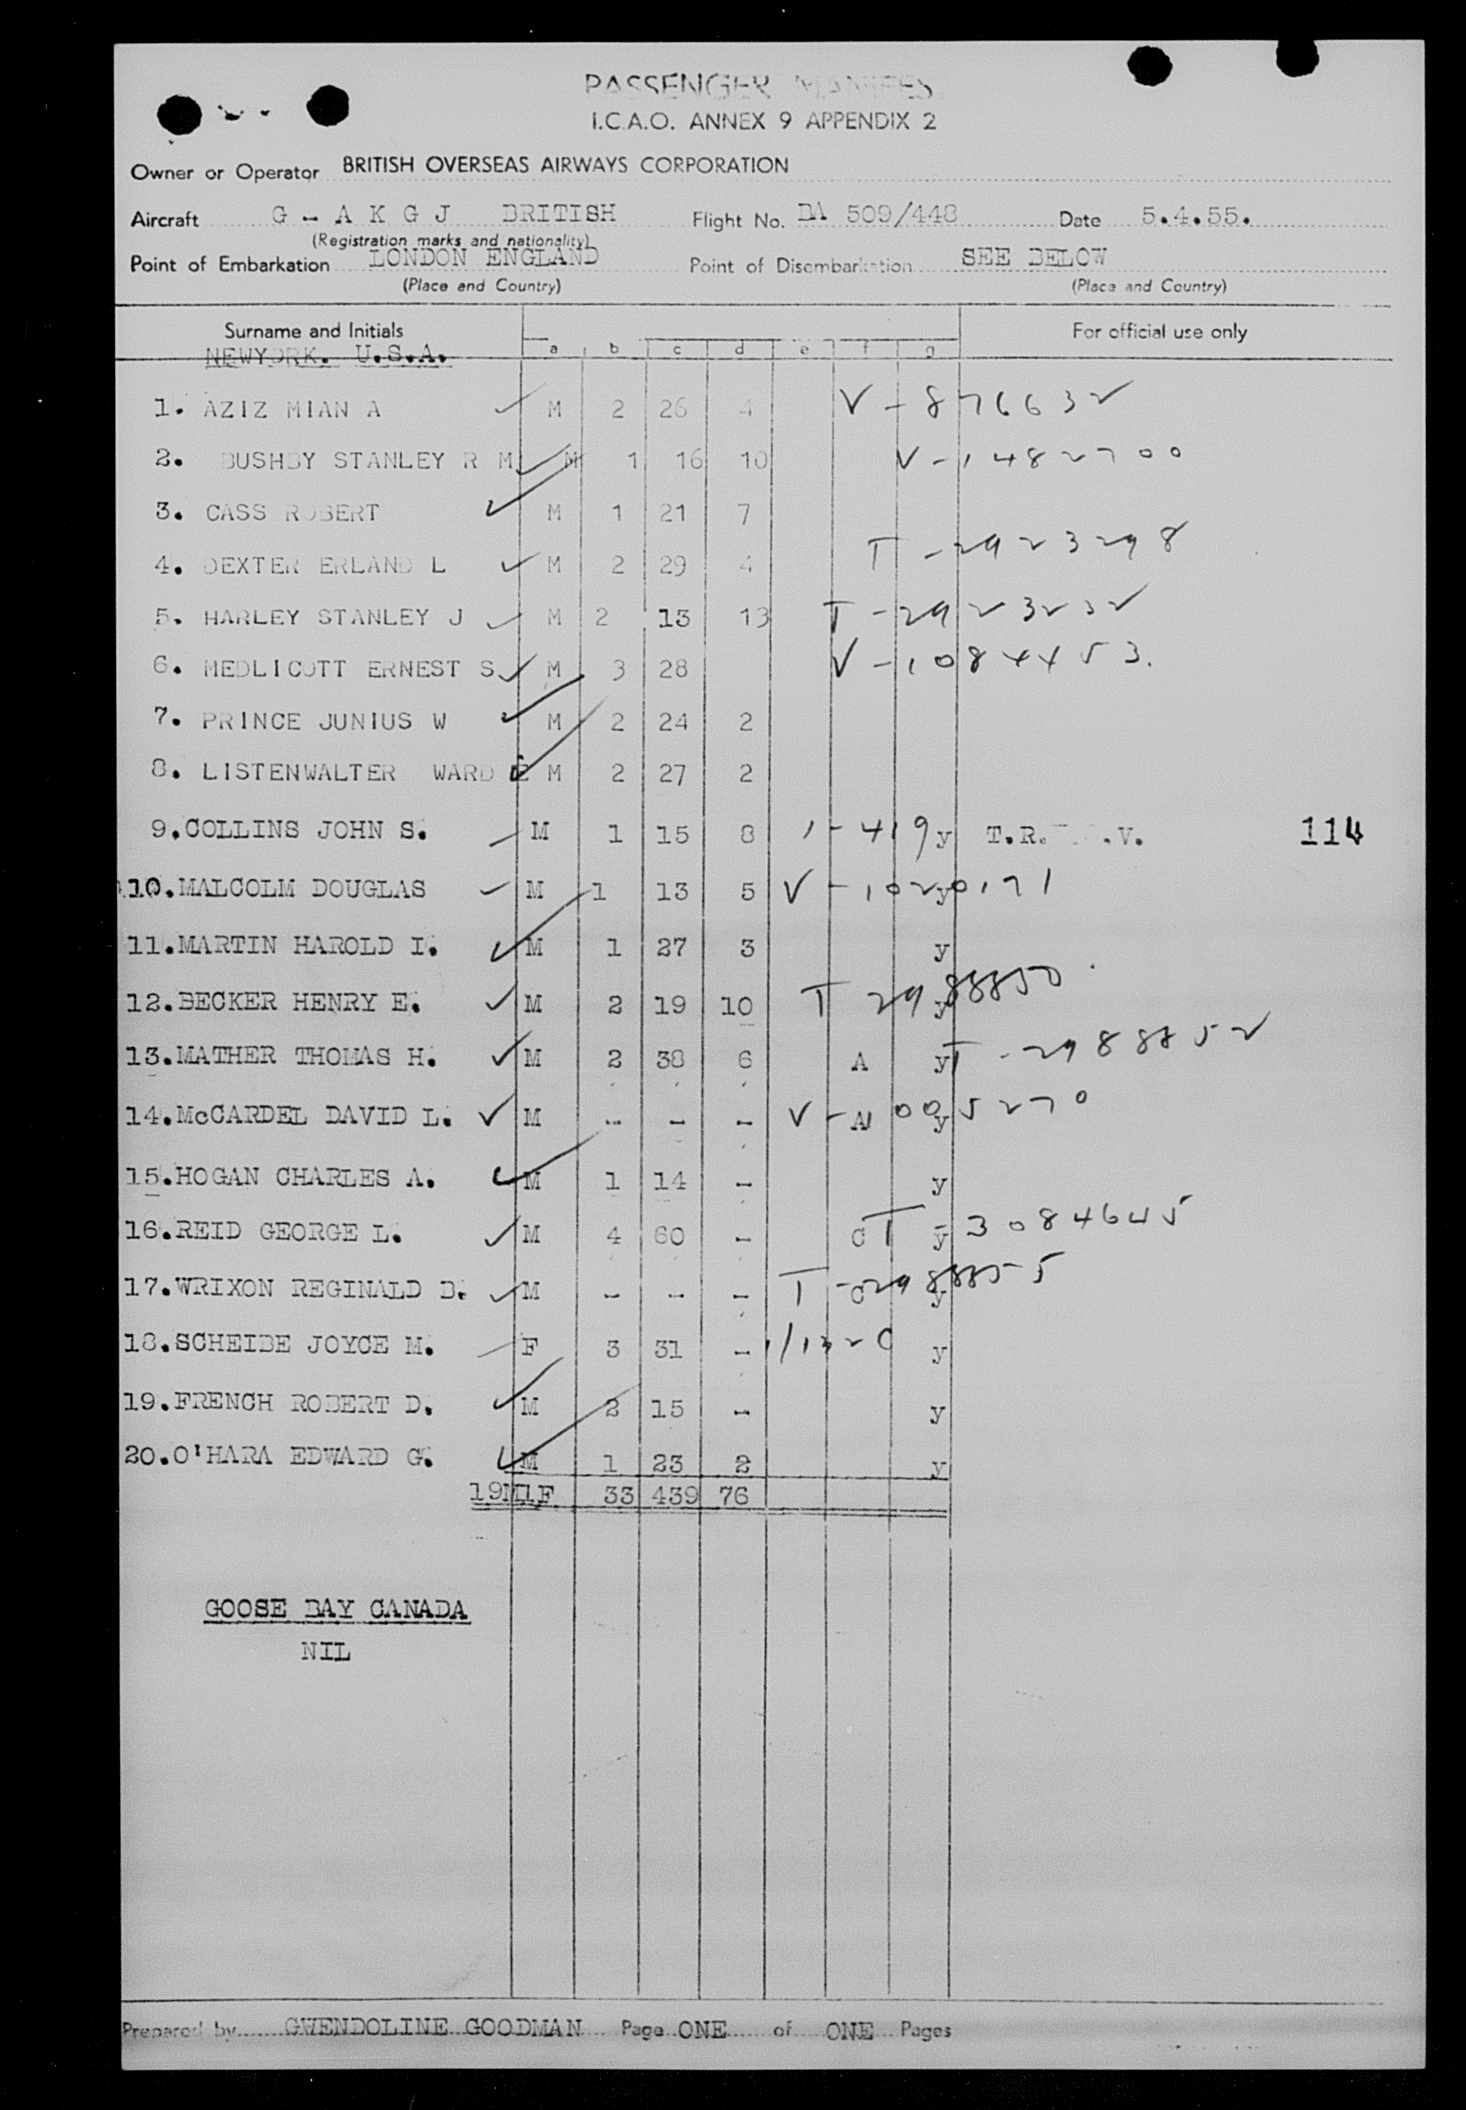 PASSENGER MANIFES
I.C.A.O. ANNEX 9 APPENDIX 2
Owner or Operator BRITISH OVERSEAS AIRWAYS CORPORATION
Aircraft G - A K G J BRITISH Flight No. BA 509/448 Date 5.4.55.
(Registration marks and nationality)
Point of Embarkation LONDON ENGLAND Point of Disembarkation SEE BELOW
(Place and Country) (Place and Country)
Surname and Initials a b c d e f g For official use only
NEWYORK. U.S.A.
1. AZIZ MIAN A M 2 26 4 V - 876632
2. BUSHBY STANLEY R M M 1 16 10 V - 1482700
3. CASS ROBERT M 1 21 7
4. DEXTER ERLAND L M 2 29 4 T - 2923298
5. HARLEY STANLEY J M 2 13 13 T - 2923232
6. MEDLICOTT ERNEST S M 3 28 V - 1084453.
7. PRINCE JUNIUS W M 2 24 2
8. LISTENWALTER WARD E M 2 27 2
9. COLLINS JOHN S. M 1 15 8 1 - 419 y T.R. .V. 114
10. MALCOLM DOUGLAS M 1 13 5 V - 1020171 y
11. MARTIN HAROLD I. M 1 27 3 y
12. BECKER HENRY E. M 2 19 10 T 2988850 y
13. MATHER THOMAS H. M 2 38 6 A y T - 2988852
14. McCARDEL DAVID L. M - - - V - A 005270 y
15. HOGAN CHARLES A. M 1 14 - y
16. REID GEORGE L. M 4 60 - C y T - 3084645
17. WRIXON REGINALD B. M - - - T - 2988855 C y
18. SCHEIBE JOYCE M. F 3 31 - y
19. FRENCH ROBERT D. M 2 15 - y
20. O'HARA EDWARD G. M 1 23 2 y
19M1F 33 439 76
GOOSE BAY CANADA
NIL
Prepared by GWENDOLINE GOODMAN Page ONE of ONE Pages